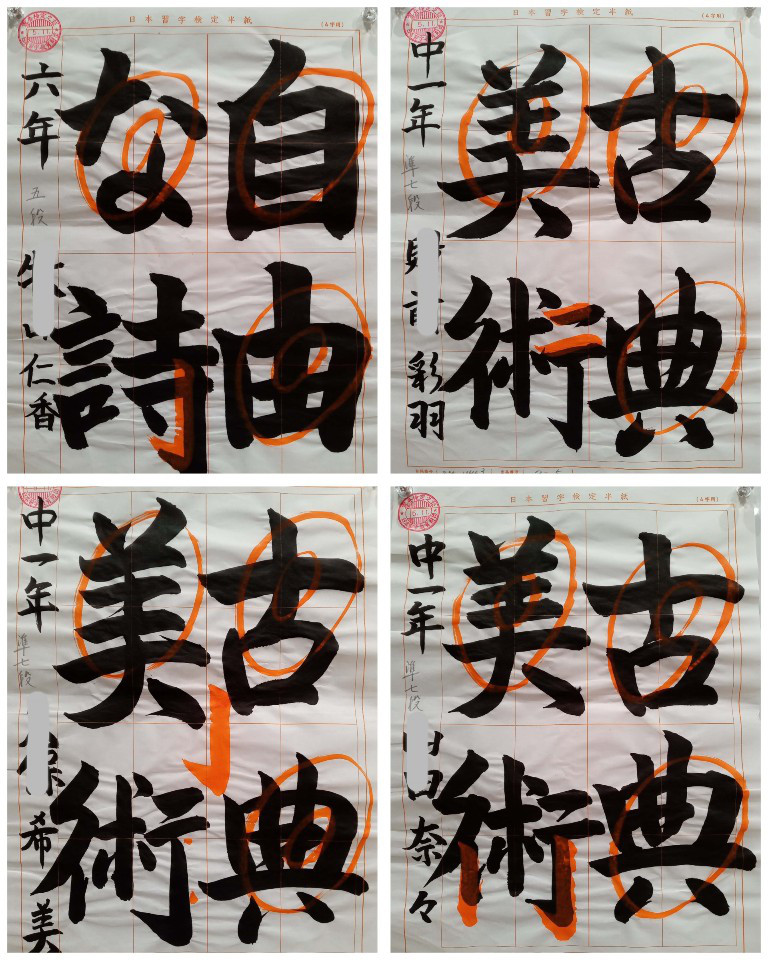 日本習字検定半紙
(4字用)
5.11
自由
な詩
六年
五段
仁香
日本習字検定半紙
(4字用)
5.11
古典
美術
中一年
準七段
彩羽
古典
美術
中一年
準七段
希美
日本習字検定半紙
(4字用)
5.11
古典
美術
中一年
準七段
田奈々